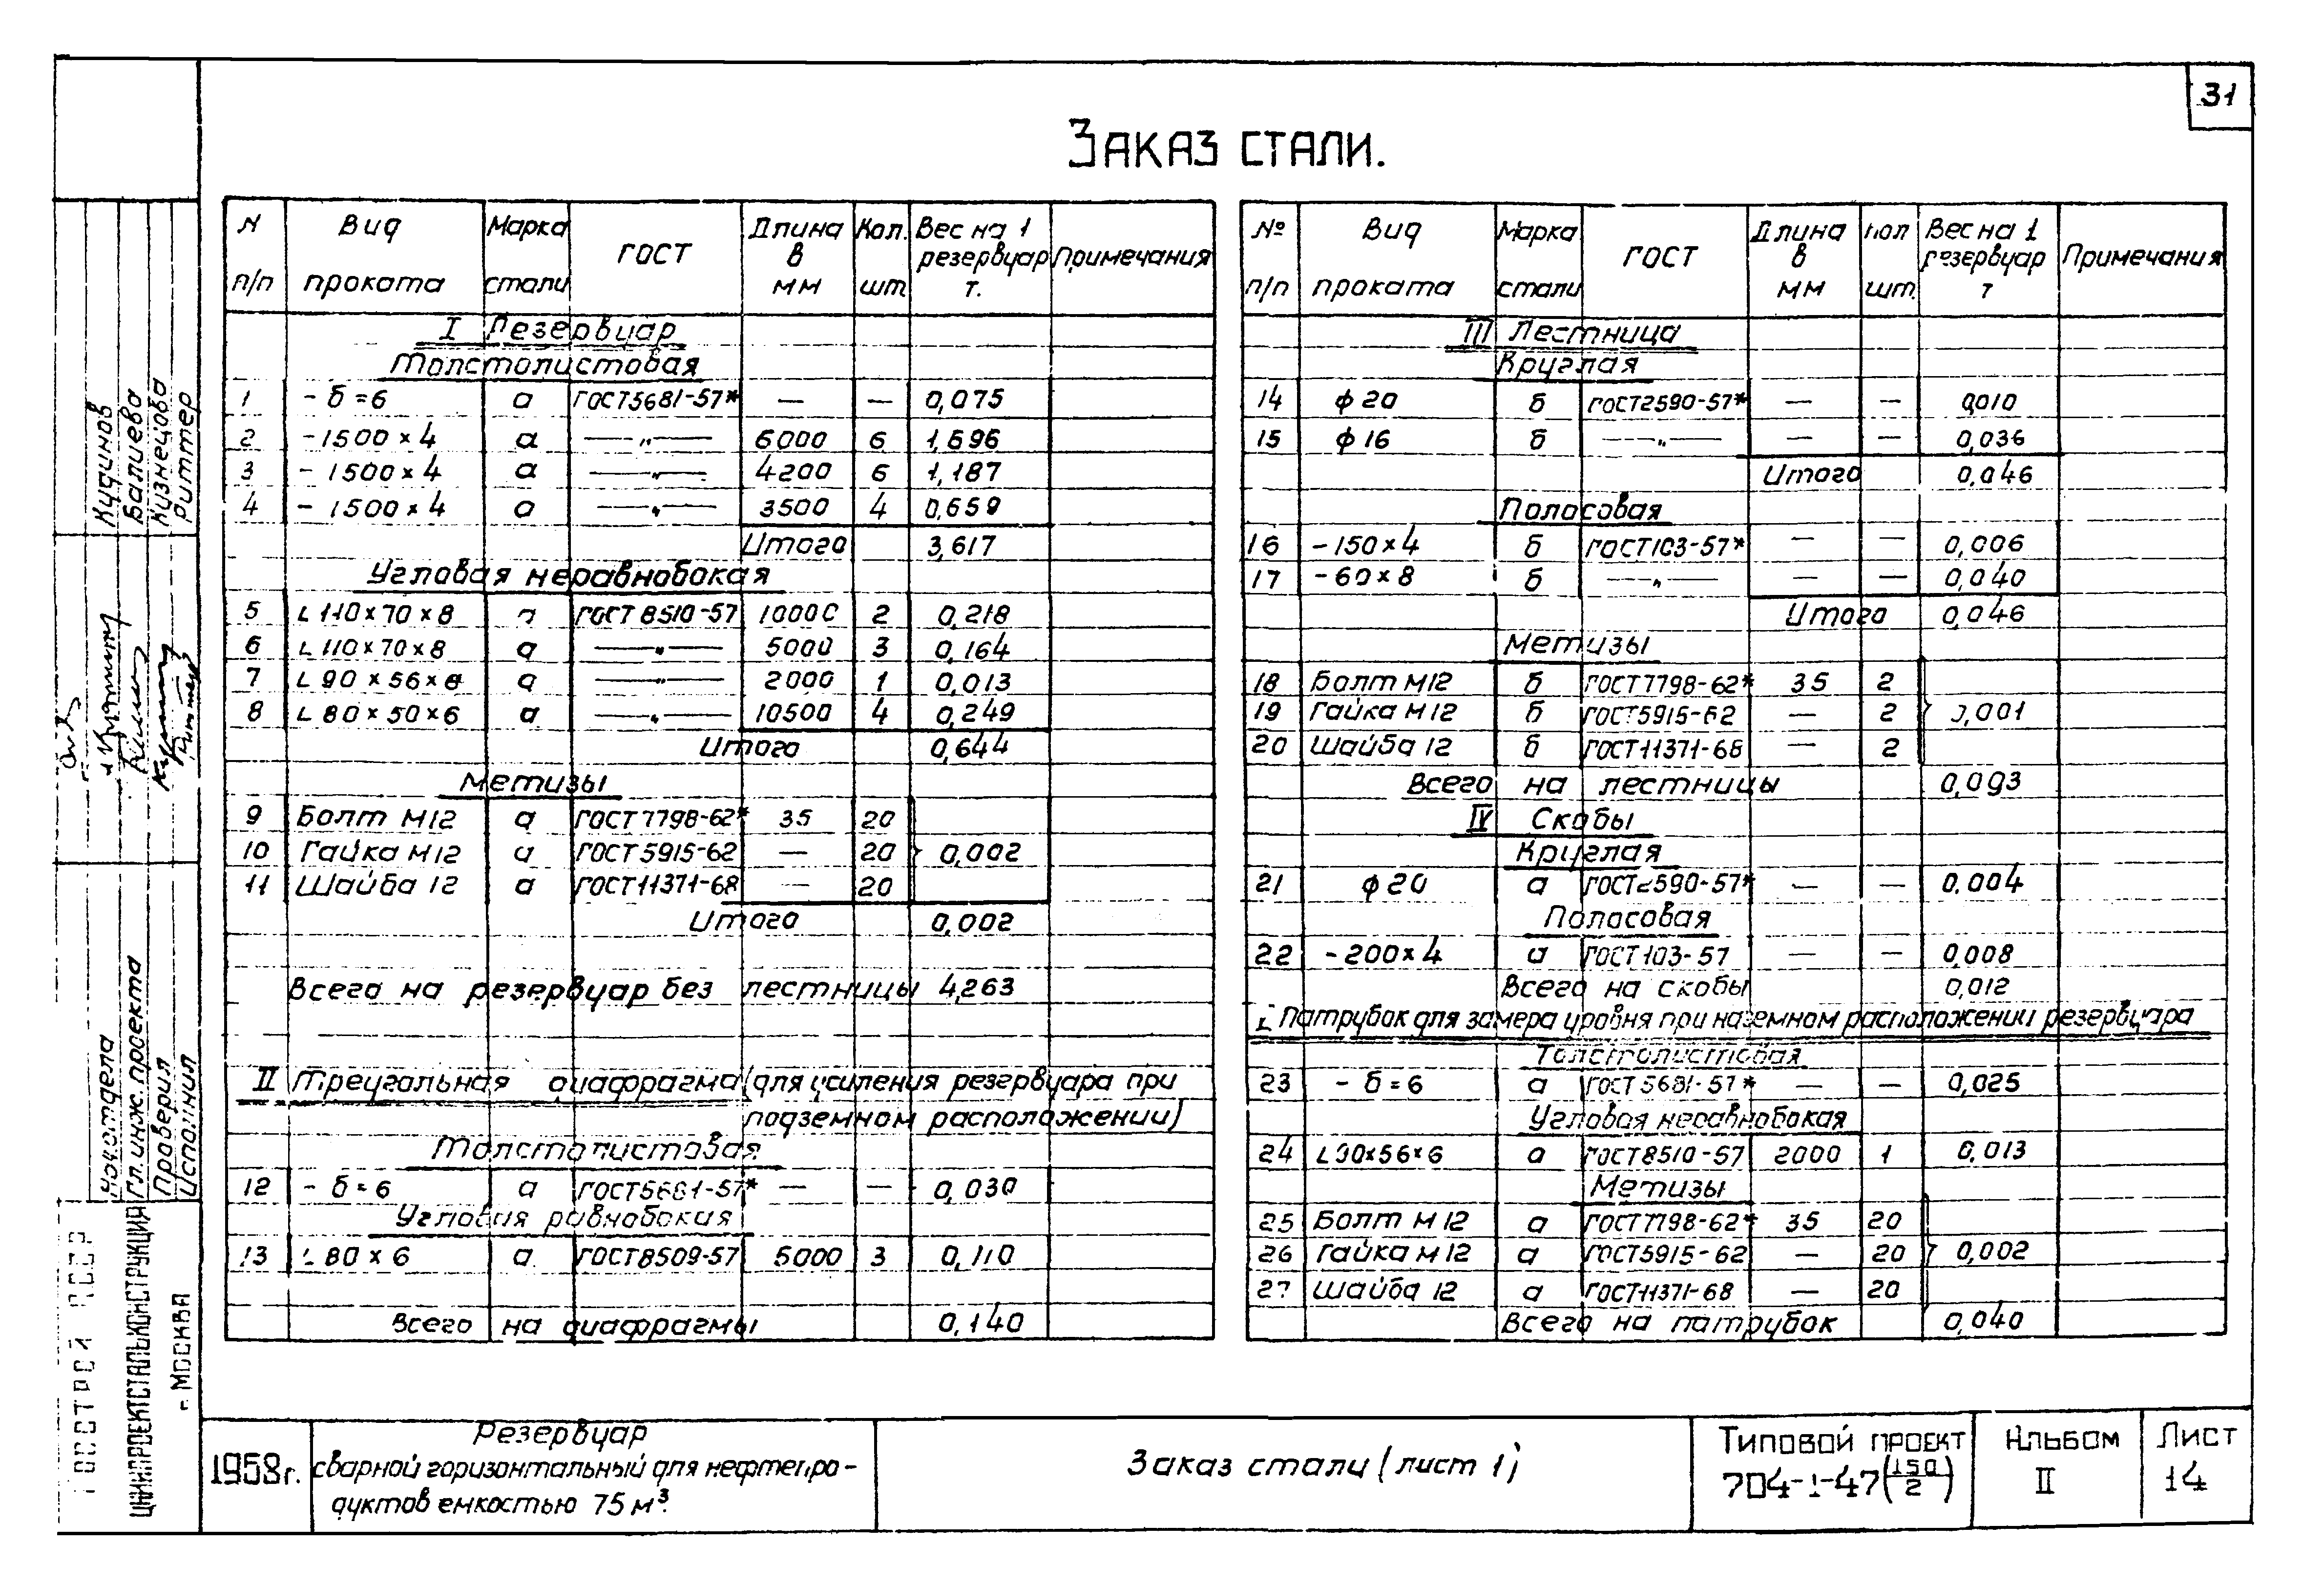 31
Заказ стали.
N п/п | Вид проката | Марка стали | ГОСТ | Длина в мм | Кол. шт | Вес на 1 резервуар т. | Примечания
I Резервуар
Толстолистовая
1 | - б=6 | а | ГОСТ5681-57* | — | — | 0,075
2 | -1500×4 | а | —"— | 6000 | 6 | 1,696
3 | -1500×4 | а | —"— | 4200 | 6 | 1,187
4 | -1500×4 | а | —"— | 3500 | 4 | 0,659
Итого 3,617
Угловая неравнобокая
5 | L110×70×8 | а | ГОСТ8510-57 | 10000 | 2 | 0,218
6 | L110×70×8 | а | —"— | 5000 | 3 | 0,164
7 | L90×56×6 | а | —"— | 2000 | 1 | 0,013
8 | L80×50×6 | а | —"— | 10500 | 4 | 0,249
Итого 0,644
Метизы
9 | Болт М12 | а | ГОСТ7798-62* | 35 | 20
10 | Гайка М12 | а | ГОСТ5915-62 | — | 20 | 0,002
11 | Шайба 12 | а | ГОСТ11371-68 | — | 20
Итого 0,002
Всего на резервуар без лестницы 4,263
II Треугольная диафрагма (для усиления резервуара при
подземном расположении)
Толстолистовая
12 | - б=6 | а | ГОСТ5681-57* | — | — | 0,030
Угловая равнобокая
13 | L80×6 | а | ГОСТ8509-57 | 5000 | 3 | 0,110
Всего на диафрагмы 0,140
№ п/п | Вид проката | Марка стали | ГОСТ | Длина в мм | Кол шт. | Вес на 1 резервуар т | Примечания
III Лестница
Круглая
14 | ф20 | б | ГОСТ2590-57* | — | — | 0,010
15 | ф16 | б | —"— | — | — | 0,036
Итого 0,046
Полосовая
16 | -150×4 | б | ГОСТ103-57* | — | — | 0,006
17 | -60×8 | б | —"— | — | — | 0,040
Итого 0,046
Метизы
18 | Болт М12 | б | ГОСТ7798-62* | 35 | 2
19 | Гайка М12 | б | ГОСТ5915-62 | — | 2 | 0,001
20 | Шайба 12 | б | ГОСТ11371-68 | — | 2
Всего на лестницы 0,093
IV Скобы
Круглая
21 | ф20 | а | ГОСТ2590-57* | — | — | 0,004
Полосовая
22 | -200×4 | а | ГОСТ103-57 | — | — | 0,008
Всего на скобы 0,012
Патрубок для замера уровня при наземном расположении резервуара
Толстолистовая
23 | - б=6 | а | ГОСТ5681-57* | — | — | 0,025
Угловая неравнобокая
24 | L90×56×6 | а | ГОСТ8510-57 | 2000 | 1 | 0,013
Метизы
25 | Болт М12 | а | ГОСТ7798-62* | 35 | 20
26 | Гайка М12 | а | ГОСТ5915-62 | — | 20 | 0,002
27 | Шайба 12 | а | ГОСТ11371-68 | — | 20
Всего на патрубок 0,040
Госстрой СССР
ЦНИИПРОЕКТСТАЛЬКОНСТРУКЦИЯ
г. Москва
Нач.отдела Кудинов
Гл.инж.проекта Валиева
Проверил Кузнецова
Исполнил Риттер
1968г.
Резервуар
сварной горизонтальный для нефтепро-
дуктов емкостью 75м³.
Заказ стали (лист 1)
Типовой проект
704-1-47(150/2)
Альбом
II
Лист
14